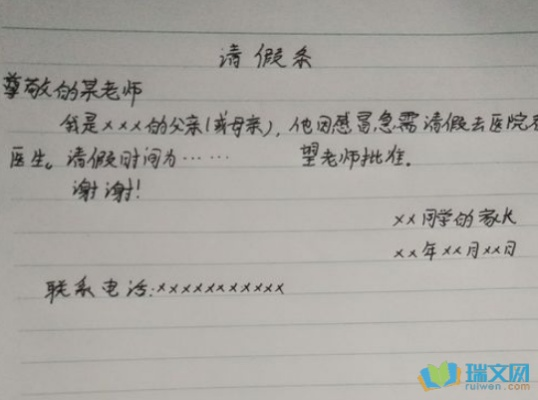 请假条
尊敬的某老师
我是×××的父亲(或母亲),他因感冒急需请假去医院看
医生。请假时间为…… 望老师批准。
谢谢!
××同学的家长
××年××月××日
联系电话:×××××××××××
瑞文网
ruiwen.com